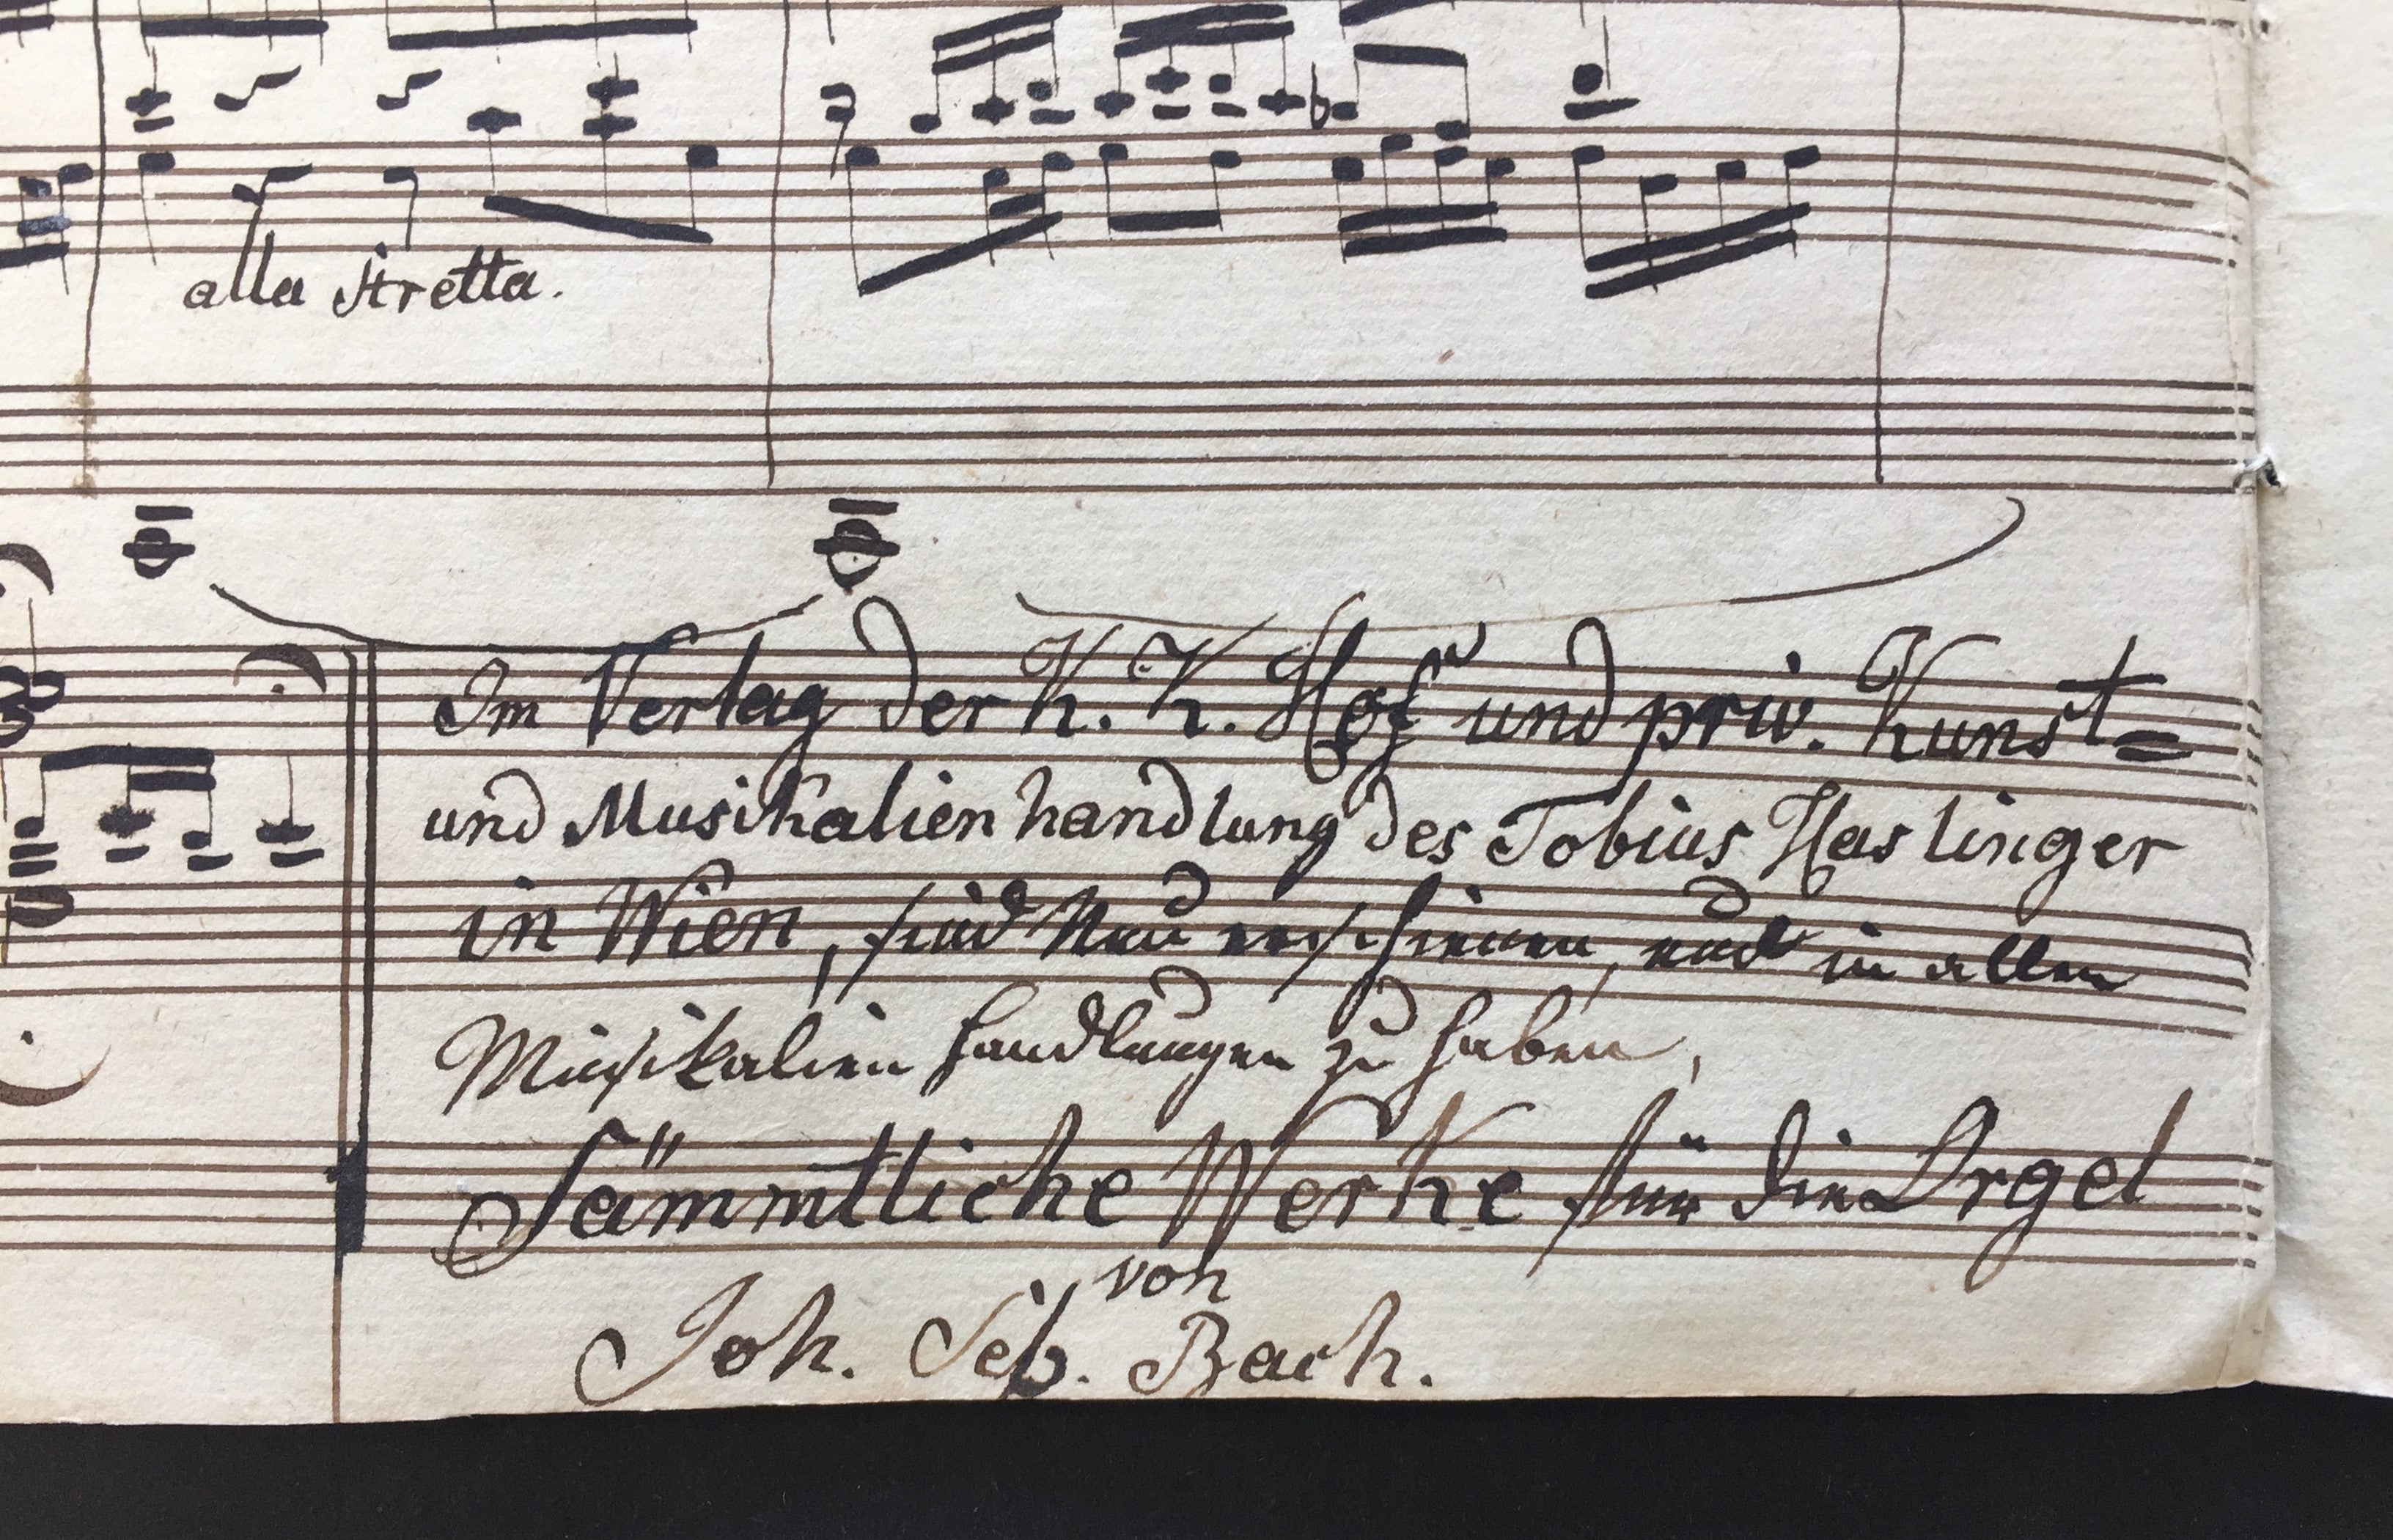 alla stretta.
Im Verlag der K. K. Hof und priv. Kunst=
und Musikalienhandlung des Tobias Haslinger
in Wien, sind neu erschienen, und in allen
Musikalien handlungen zu haben,
Sämmtliche Werke für die Orgel
von
Joh. Seb. Bach.